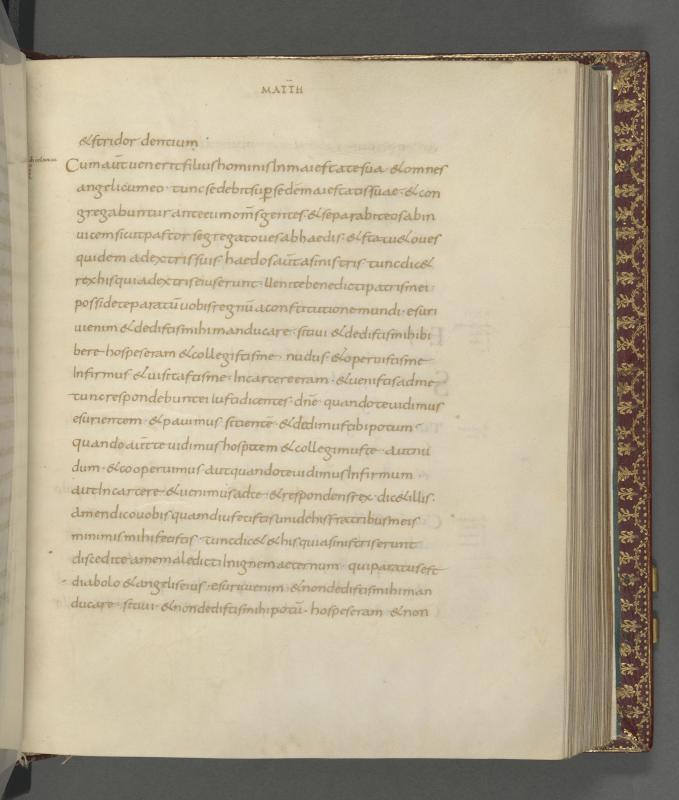 MATTH
& stridor dentium
Cum aut uenerit filius hominis In maiestate sua · & omnes
angeli cum eo · tunc sedebit sup sedem maiestatis suae · & con
gregabuntur ante eum oms gentes · & separabit eos abin
uicem sicut pastor segregat oues ab haedis · & statu& oues
quidem a dextris suis haedos aut a sinistris · tunc dic&
rex his qui a dextris eius erunt · Uenite benedicti patris mei·
possidete paratu uobis regnu a constitutione mundi · esuri
ui enim & dedistis mihi manducare · sitiui & dedistis mihi bi
bere · hospes eram & collegistis me · nudus & operuistis me
Infirmus & uisitastis me · In carcere eram · & uenistis ad me
tunc respondebunt ei iusti dicentes · dne quando te uidimus
esurientem · & pauimus sitiente · & dedimus tibi potum ·
quando aut te uidimus hospitem & collegimus te · aut nu
dum · & cooperuimus · aut quando te uidimus Infirmum
aut In carcere · & uenimus ad te · & respondens rex · dic& illis·
amen dico uobis quandiu fecistis uni de his fratribus meis
minimis mihi fecistis · tunc dic& & his qui a sinistris erunt
discedite a me maledicti In ignem aeternum · qui paratus est
diabolo & angelis eius · esuriui enim · & non dedistis mihi man
ducare · sitiui · & non dedistis mihi potu · hospes eram · & non